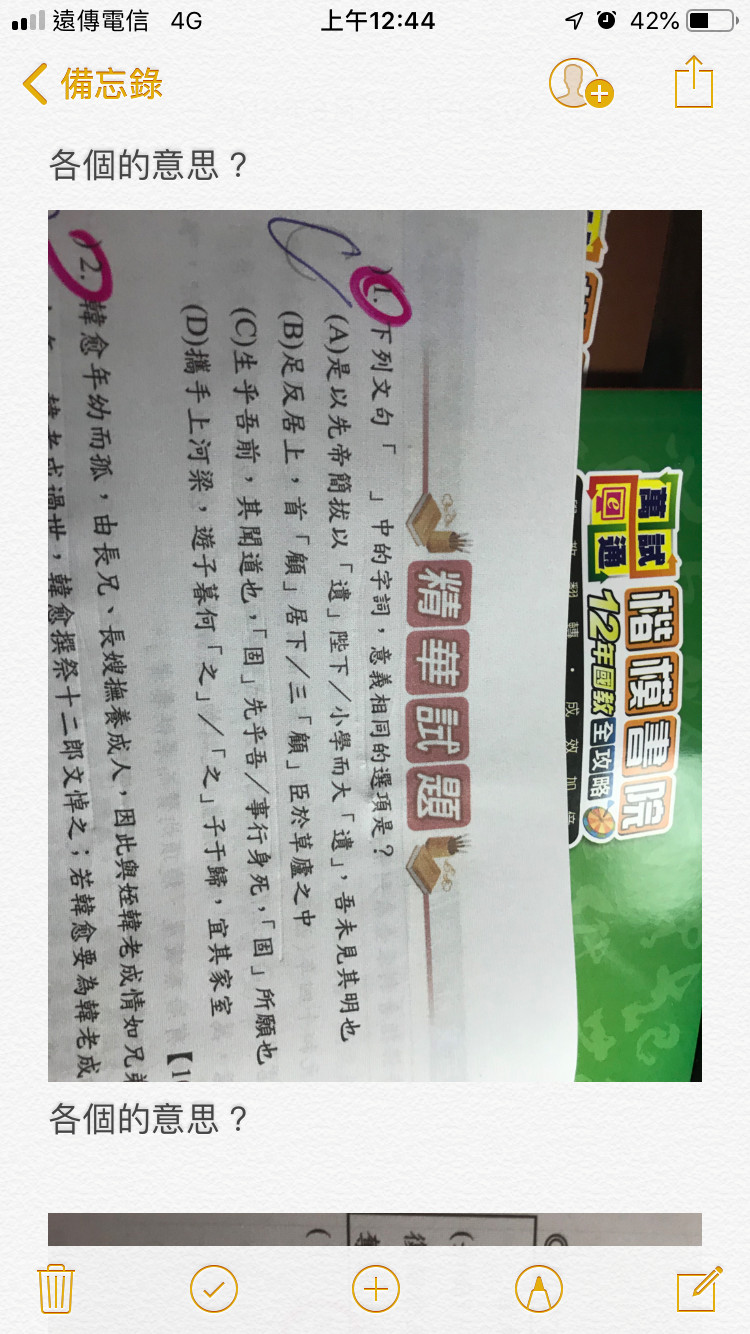 遠傳電信 4G 上午12:44 42%
備忘錄
各個的意思？
萬試e通
楷模書院
12年國教全攻略
精華試題
1. 下列文句「 」中的字詞，意義相同的選項是？
(A)是以先帝簡拔以「遺」陛下／小學而大「遺」，吾未見其明也
(B)足反居上，首「顧」居下／三「顧」臣於草廬之中
(C)生乎吾前，其聞道也，「固」先乎吾／事行身死，「固」所願也
(D)攜手上河梁，遊子暮何「之」／「之」子于歸，宜其家室
2. 韓愈年幼而孤，由長兄、長嫂撫養成人，因此與姪韓老成情如兄
韓老成過世，韓愈撰祭十二郎文悼之；若韓愈要為韓老成
各個的意思？